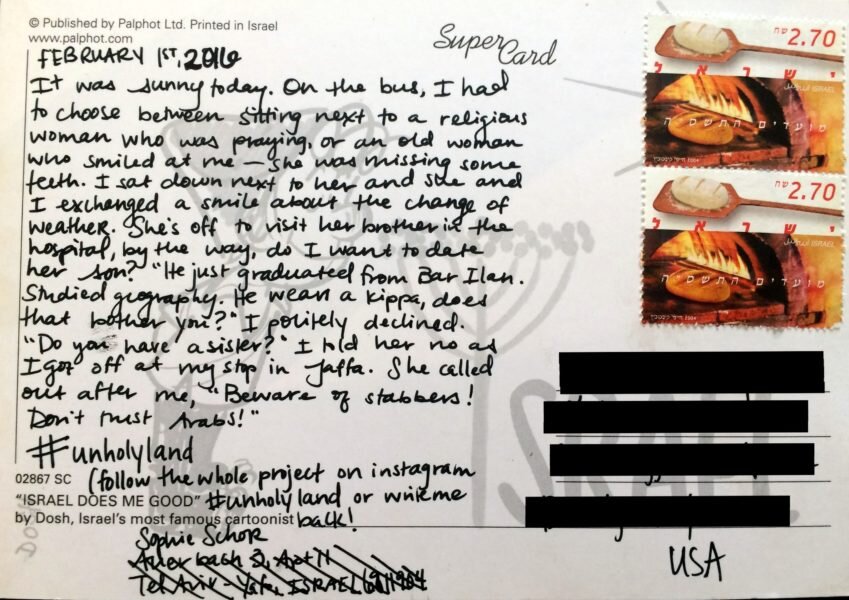 © Published by Palphot Ltd. Printed in Israel
www.palphot.com
Super Card
FEBRUARY 1ST, 2016
It was sunny today. On the bus, I had
to choose between sitting next to a religious
woman who was praying, or an old woman
who smiled at me — she was missing some
teeth. I sat down next to her and she and
I exchanged a smile about the change of
weather. She's off to visit her brother in the
hospital, by the way, do I want to date
her son? "He just graduated from Bar Ilan.
Studied geography. He wears a kippa, does
that bother you?" I politely declined.
"Do you have a sister?" I told her no as
I got off at my stop in Jaffa. She called
out after me, "Beware of stabbers!
Don't trust Arabs!"
#unholyland
(follow the whole project on instagram
#unholyland or write me
back!
02867 SC
"ISRAEL DOES ME GOOD"
by Dosh, Israel's most famous cartoonist
Sophie Schor
Tel Aviv - Yafo, ISRAEL
2.70 שח
ישראל
ISRAEL اسرائيل
מועדים התשס"ה
2.70 שח
ישראל
ISRAEL اسرائيل
מועדים התשס"ה
ISRAEL
DOSH
USA